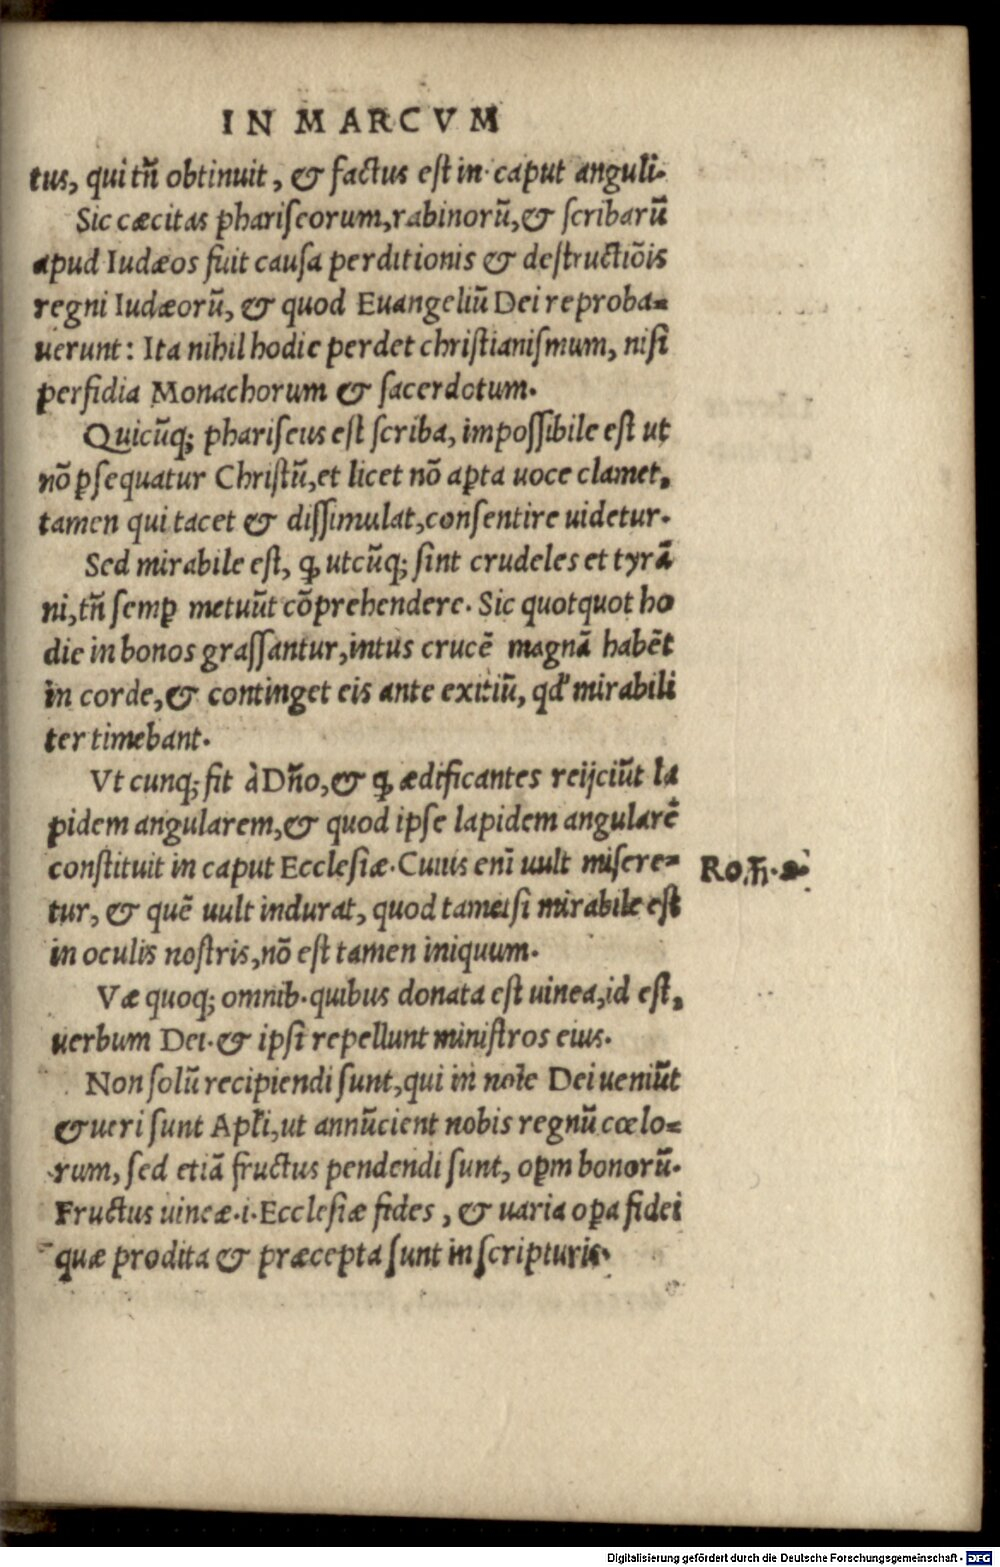 IN MARCVM
tus, qui tñ obtinuit, & factus est in caput anguli.
Sic cæcitas phariseorum, rabinorũ, & scribarũ
apud Iudæos fuit causa perditionis & destructiõis
regni Iudæorũ, & quod Euangeliũ Dei reproba=
uerunt: Ita nihil hodie perdet christianismum, nisi
perfidia Monachorum & sacerdotum.
Quicũq; phariseus est scriba, impossibile est ut
nõ ꝑsequatur Christũ, et licet nõ aꝑta uoce clamet,
tamen qui tacet & dissimulat, consentire uidetur.
Sed mirabile est, ꝙ utcũq; sint crudeles et tyrã
ni, tñ semꝑ metuũt cõprehendere. Sic quotquot ho
die in bonos grassantur, intus crucẽ magnã habẽt
in corde, & continget eis ante exitiũ, qď mirabili
ter timebant.
Vt cunq; fit à Dño, & ꝙ ædificantes reijciũt la
pidem angularem, & quod ipse lapidem angularẽ
constituit in caput Ecclesiæ. Cuius enĩ uult misere=
Ro.
tur, & quẽ uult indurat, quod tametsi mirabile est
in oculis nostris, nõ est tamen iniquum.
Væ quoq; omnib. quibus donata est uinea, id est,
uerbum Dei. & ipsi repellunt ministros eius.
Non solũ recipiendi sunt, qui in noĩe Dei ueniũt
& ueri sunt Apłi, ut annũcient nobis regnũ cœlo=
rum, sed etiã fructus pendendi sunt, oꝑm bonorũ.
Fructus uineæ .i. Ecclesiæ fides, & uaria oꝑa fidei
quæ prodita & præcepta sunt in scripturis.
Digitalisierung gefördert durch die Deutsche Forschungsgemeinschaft - DFG